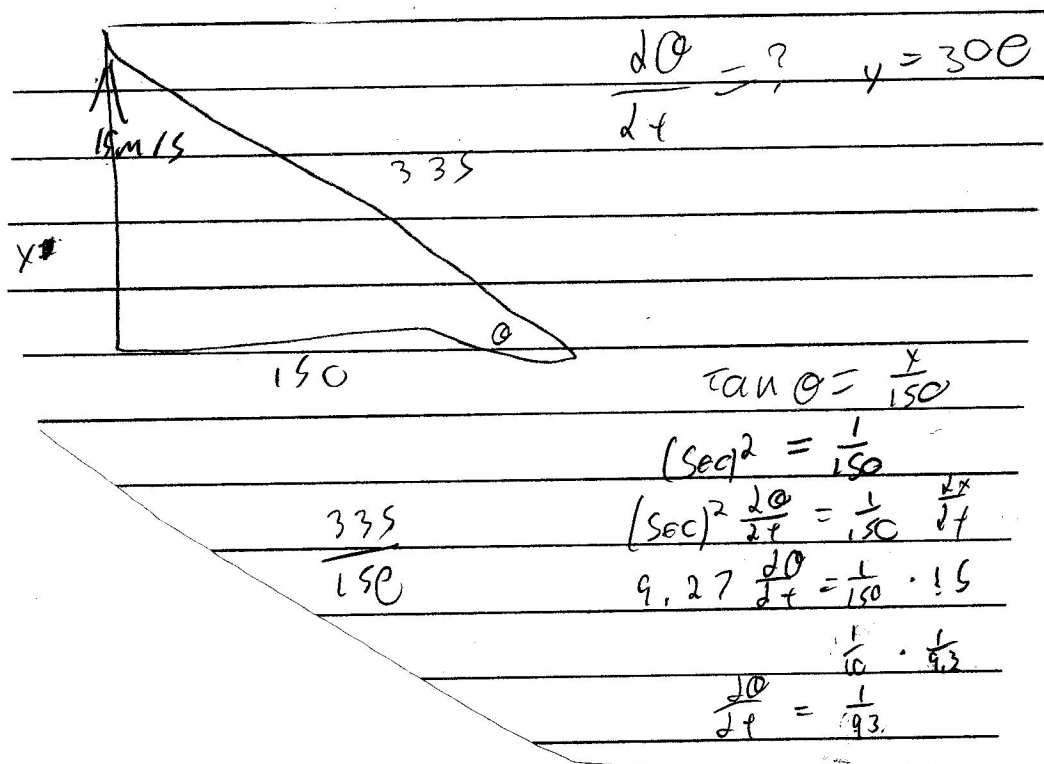 dθ/dt = ? y = 300
15m/s
335
y
θ
150
tan θ = y/150
(sec)² = 1/150
(sec)² dθ/dt = 1/150 dy/dt
335/150
9.27 dθ/dt = 1/150 · 15
1/10 · 1/9.3
dθ/dt = 1/93.